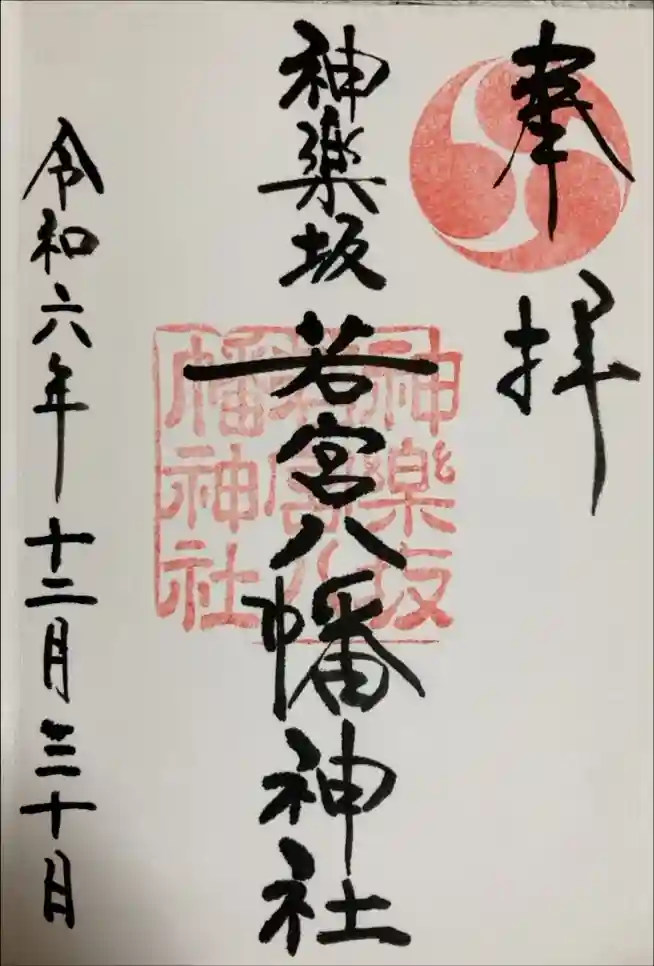 奉拝
神楽坂若宮八幡神社
神楽坂
若宮八
幡神社
令和六年十二月三十日